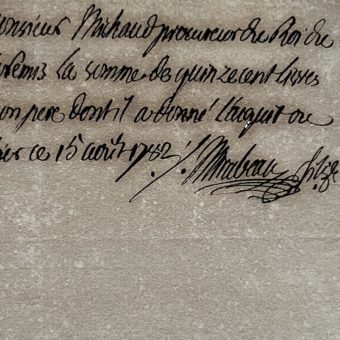 onsieur Michaud procureur du Roi de
remis la somme de quinze cent livres
on pere dont il a donné l'acquit ou
ce 15 août 1782 Mirabeau fils